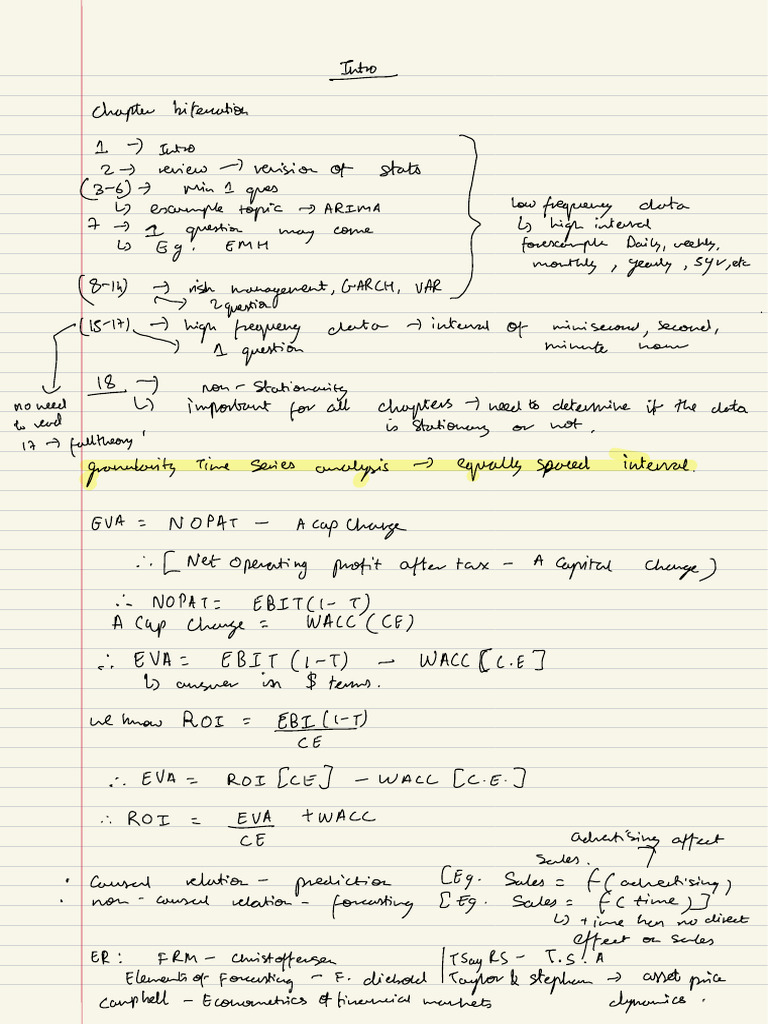 Intro
Chapter bifercation
1 → Intro
2 → review → revision of stats
(3-6) → min 1 ques
↳ example topic → ARIMA
7 → 1 question may come
↳ Eg. EMH
low frequency data
↳ high interval
forexample Daily, weekly,
monthly, yearly, 5yr, etc
(8-14) → risk management, GARCH, VAR
→ 2 question
(15-17) → high frequency data → interval of minisecond, second,
minute
→ 1 question
no need
to read
17 → full theory
18 → non-Stationarity
↳ important for all chapters → need to determine if the data
is stationary or not.
granularity Time Series analysis → equally spaced interval.
EVA = NOPAT - A Cap Charge
∴ [Net Operating profit after tax - A Capital Charge)
∴ NOPAT = EBIT(1-T)
A Cap Charge = WACC(CE)
∴ EVA = EBIT (1-T) - WACC[C.E]
↳ answer in $ terms.
we know ROI = EBI(1-T)
CE
∴ EVA = ROI [CE] - WACC [C.E.]
∴ ROI = EVA + WACC
CE
advertising affect
Sales.
· Causal relation - prediction [Eg. Sales = f(advertising)
· non-causal relation - forcasting [Eg. Sales = f(time)]
↳ time has no direct
effect on sales
ER: FRM - Christoffersen
Elements of Forcasting - F. diebold
Campbell - Econometrics of financial markets
Tsay RS - T.S.A
Taylor & Stephen → asset price
dynamics.